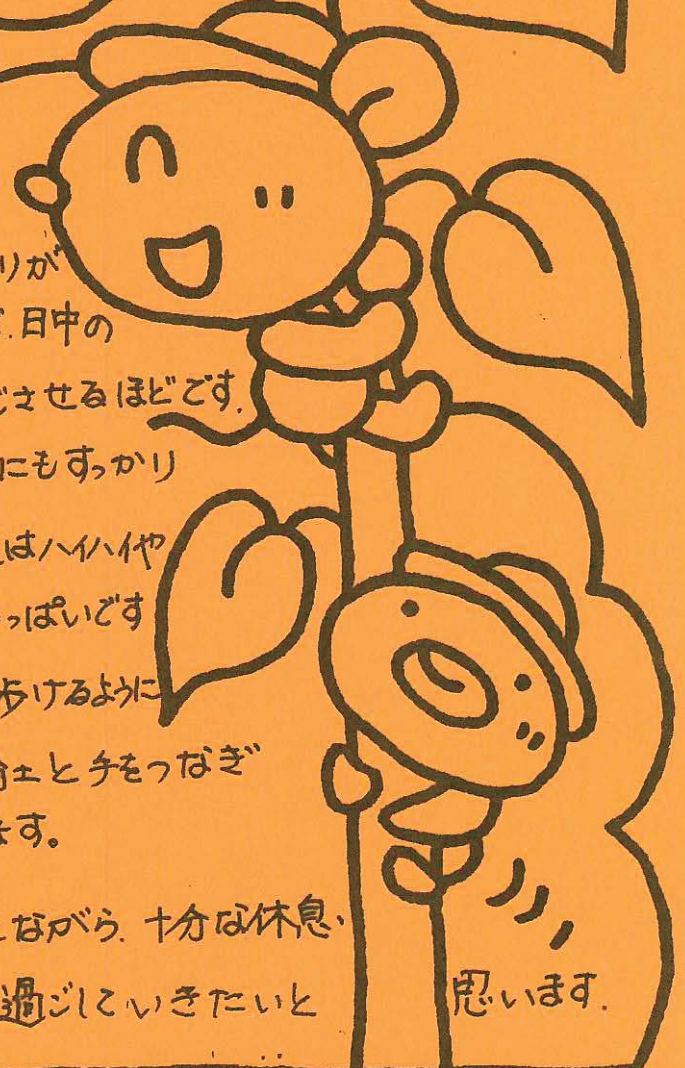 りが
日中の
させるほどです.
にもすっかり
はハイハイや
っぱいです
歩けるように
士と手をつなぎ
ます。
ながら.十分な休息、
過ごしていきたいと 思います.